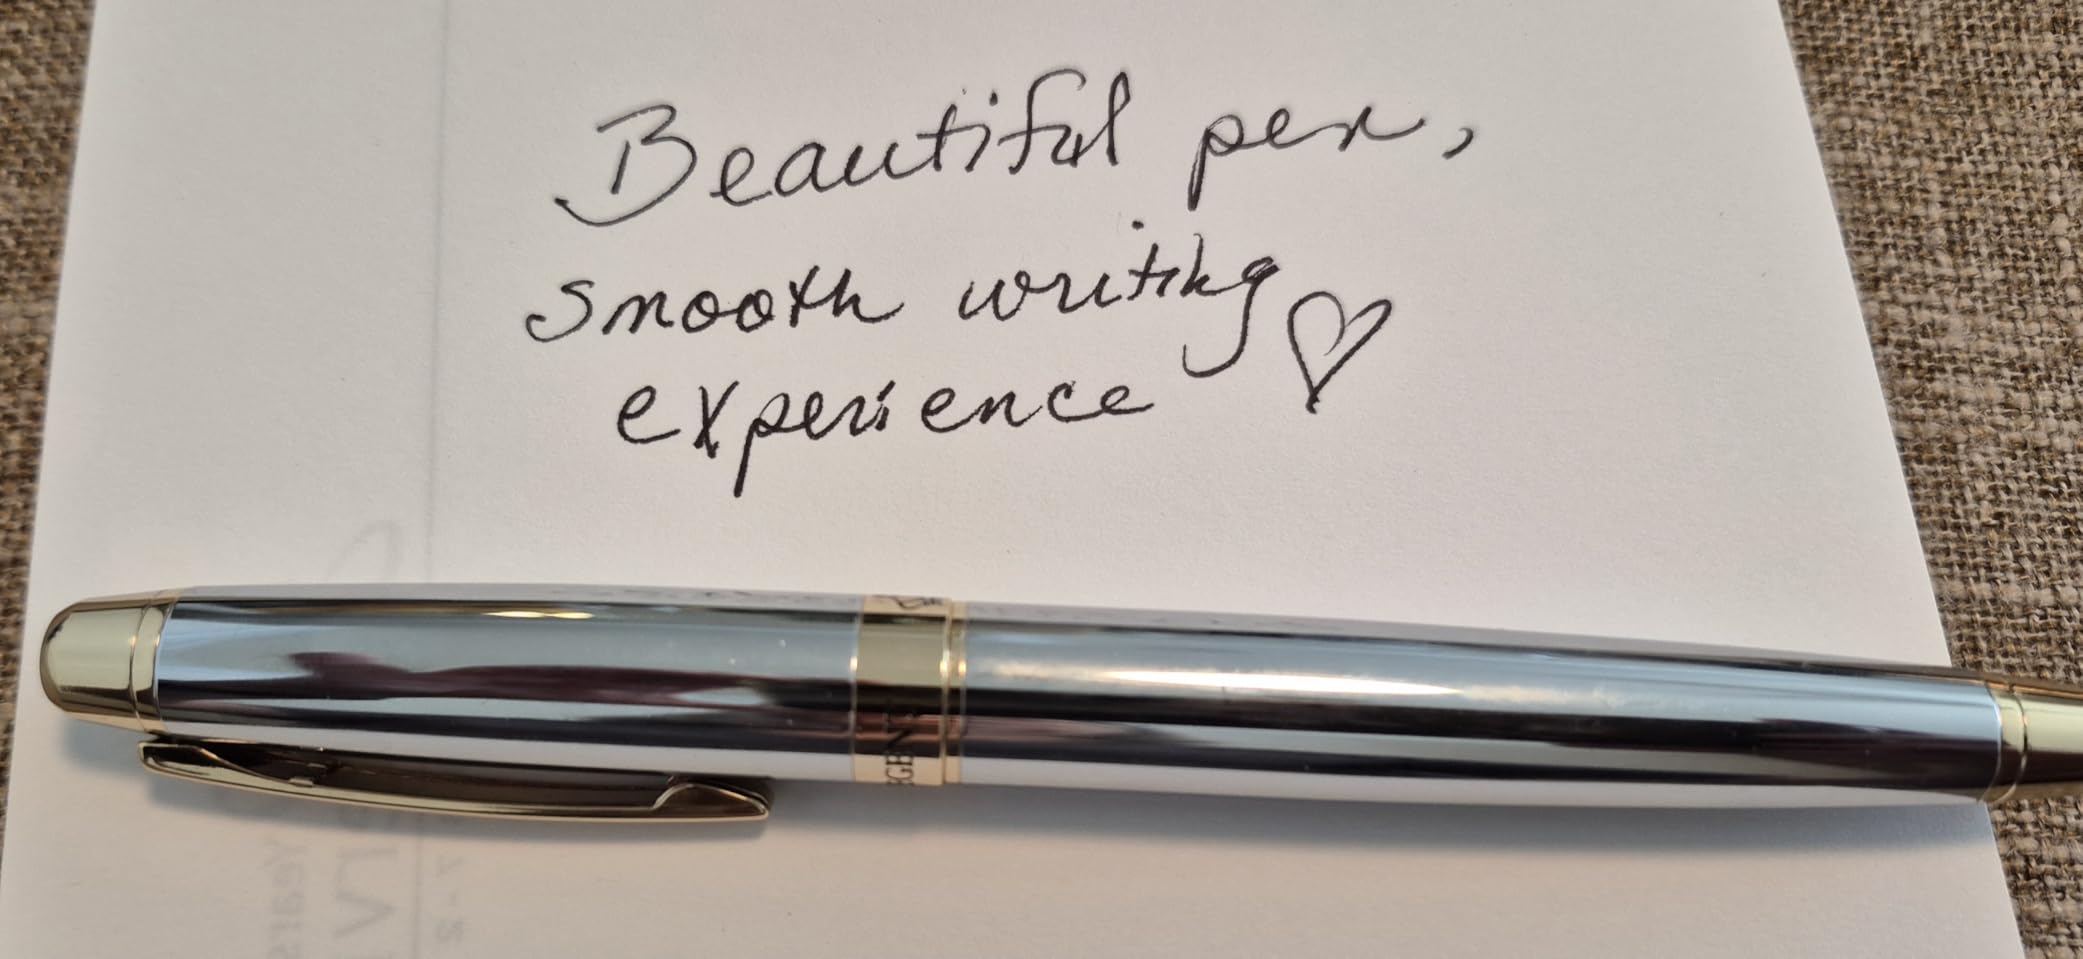 Beautiful pen,
smooth writing
experience